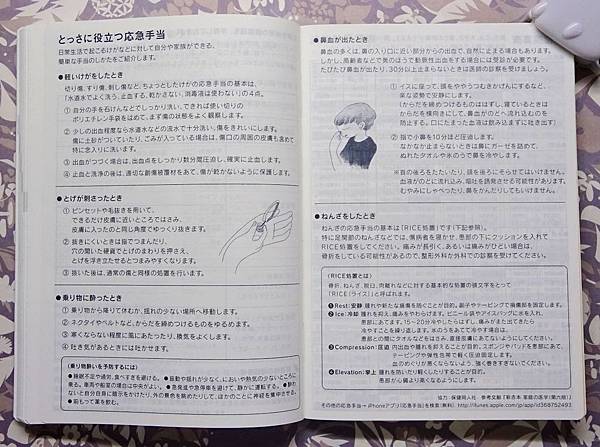 とっさに役立つ応急手当
日常生活で起こるけがなどに対して自分や家族ができる、
簡単な手当のしかたをご紹介します。
● 軽いけがをしたとき
切り傷、すり傷、刺し傷など、ちょっとしたけがの応急手当の基本は、
「水道水でよく洗う、止血する、乾かさない、消毒液は使わない」の4点。
① 自分の手を石けんなどでしっかり洗い、できれば使い切りの
ポリエチレン手袋をはめて、まず傷の状態をよく観察します。
② 少しの出血程度なら水道水などの流水で十分洗い、傷をきれいにします。
傷に土砂がついていたり、ごみが入っている場合は、傷口の周囲の皮膚も含めて
特に念入りに洗います。
③ 出血がつづく場合は、出血点をしっかり数分間圧迫し、確実に止血します。
④ 止血と洗浄の後は、適切な創傷被覆材をあて、傷が乾かないように保護します。
● とげが刺さったとき
① ピンセットや毛抜きを用いて、
できるだけ皮膚に近いところではさみ、
皮膚に入ったのと同じ角度でゆっくり抜きます。
② 抜きにくいときは指でつまんだり、
穴の開いた硬貨でとげのまわりを押さえ、
とげを浮き立たせるとつまみやすくなります。
③ 抜いた後は、通常の傷と同様の処置を行います。
● 乗り物に酔ったとき
① 乗り物から降りて休むか、揺れの少ない場所へ移動します。
② ネクタイやベルトなど、からだを締めつけるものをゆるめます。
③ 寒くならない程度に風にあたったり、換気をよくします。
④ 吐き気があるときには吐かせます。
(乗り物酔いを予防するには)
● 睡眠不足や過労、食べすぎを避ける。 ● 振動や揺れが少なく、においや熱気の少ないところに
乗る。車両や船室の場合は中央がよい。 ● 急発進や急停車を避けて、静かに運転する。 ● 酔わ
ないと自分自身に暗示をかけたり、外の景色を眺めたりして、ほかのことに神経を集中させる。
● 前もって薬を飲む。
● 鼻血が出たとき
鼻血の多くは、鼻の入り口に近い部分からの出血で、自然に止まる場合もあります。
しかし、高齢者などで奥のほうで動脈性出血をする場合には受診が必要です。
たびたび鼻血が出たり、30分以上止まらないときは医師の診察を受けましょう。
① イスに座って、頭をややうつむきかげんにするなど、
楽な姿勢で安静にします。
(からだを締めつけるものははずし、寝ているときは
からだを横向きにして、鼻血がのどへ流れ込むのを
防止する。口にたまった血液は飲み込まずに吐き出す)
② 指で小鼻を10分ほど圧迫します。
なかなか止まらないときは鼻にガーゼを詰めて、
ぬれたタオルや氷のうで鼻を冷やします。
※首の後ろをたたいたり、頭を後ろにそらせてはいけません。
血液がのどに流れ込み、嘔吐を誘発させる可能性があります。
むやみにしゃべったり、鼻をかんだりしてもいけません。
● ねんざをしたとき
ねんざの応急手当の基本は「RICE処置」です(下記参照)。
特に足関節のねんざなどでは、傷病者を寝かせ、患部の下にクッションを入れて
RICE処置をしてください。痛みが長引く、あるいは痛みがひどい場合は、
骨折をしている可能性があるので、整形外科か外科での診察を受けてください。
(RICE処置とは)
骨折、ねんざ、脱臼、肉離れなどに対する基本的な処置の頭文字をとって、
「RICE(ライス)」と呼ばれます。
①Rest:安静 腫れや新たな損傷を防ぐことが目的。副子やテーピングで損傷部を固定します。
②Ice:冷却 腫れを抑え、痛みをやわらげます。ビニール袋やアイスバッグに氷を入れ、
患部にあてます。15~20分冷やしたらはずし、痛みがまた出てきたら
冷やすことを繰り返します。氷のうをあてて冷やす場合は、
患部との間にタオルなどをはさみ、直接皮膚にあてないようにしてください。
③Compression:圧迫 内出血や腫れを抑えることが目的。スポンジやパッドを患部にあて、
テーピングや弾性包帯で軽く圧迫固定します。
血のめぐりが悪くならないよう、強く巻きすぎないでください。
④Elevation:挙上 腫れを防いだり軽くしたりすることが目的。
患部が心臓より高くなるようにします。
協力:保健同人社 参考文献「新赤本 家庭の医学(第六版)」
その他の応急手当→iPhoneアプリ「応急手当」を検索(無料) http://itunes.apple.com/jp/app/id368752493